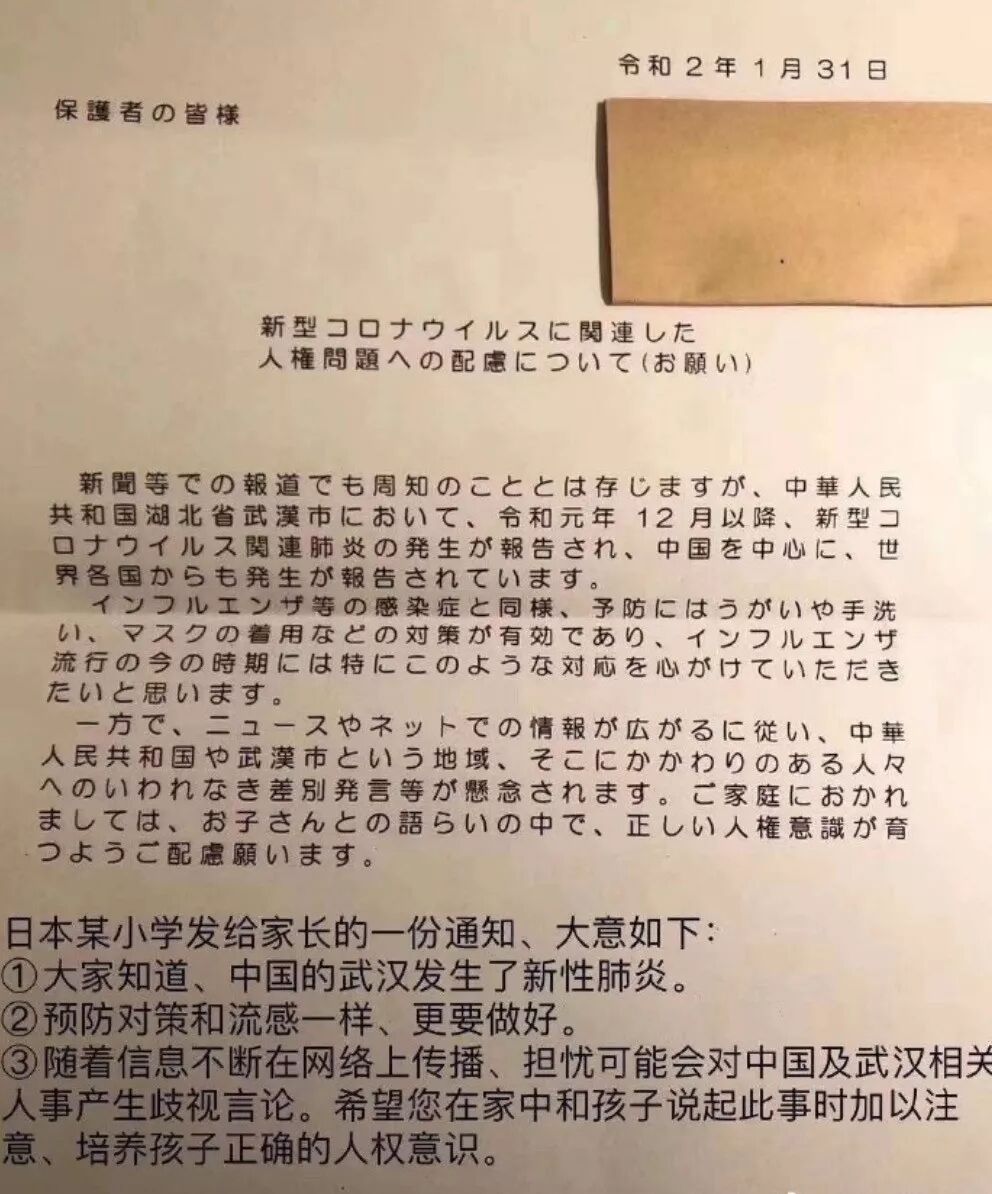 令和2年1月31日
保護者の皆様
新型コロナウイルスに関連した
人権問題への配慮について(お願い)
新聞等での報道でも周知のこととは存じますが、中華人民
共和国湖北省武漢市において、令和元年 12 月以降、新型コ
ロナウイルス関連肺炎の発生が報告され、中国を中心に、世
界各国からも発生が報告されています。
インフルエンザ等の感染症と同様、予防にはうがいや手洗
い、マスクの着用などの対策が有効であり、インフルエンザ
流行の今の時期には特にこのような対応を心がけていただき
たいと思います。
一方で、ニュースやネットでの情報が広がるに従い、中華
人民共和国や武漢市という地域、そこにかかわりのある人々
へのいわれなき差別発言等が懸念されます。ご家庭におかれ
ましては、お子さんとの語らいの中で、正しい人権意識が育
つようご配慮願います。
日本某小学发给家长的一份通知、大意如下:
①大家知道、中国的武汉发生了新性肺炎。
②预防对策和流感一样、更要做好。
③随着信息不断在网络上传播、担忧可能会对中国及武汉相关
人事产生歧视言论。希望您在家中和孩子说起此事时加以注
意、培养孩子正确的人权意识。